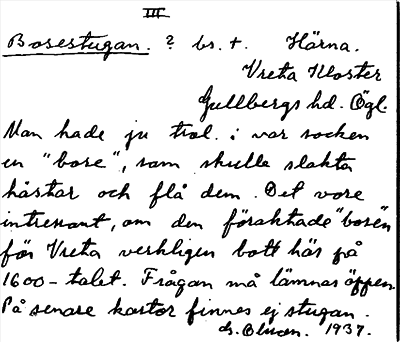 III
Bosestugan. ? bs. t. Härna.
Vreta Kloster
Gullbergs hd. Ögl.
Man hade ju trol. i var socken
en "bose", som skulle slakta
hästar och flå dem. Det vore
intressant, om den föraktade "bosen"
för Vreta verkligen bott här på
1600-talet. Frågan må lämnas öppen.
På senare kartor finnes ej stugan.
1937.